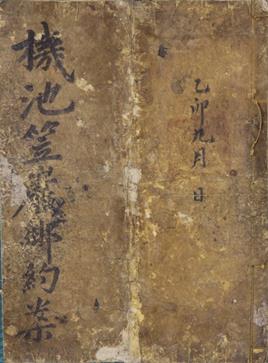 機池笠巖鄉約案
乙卯九月 日